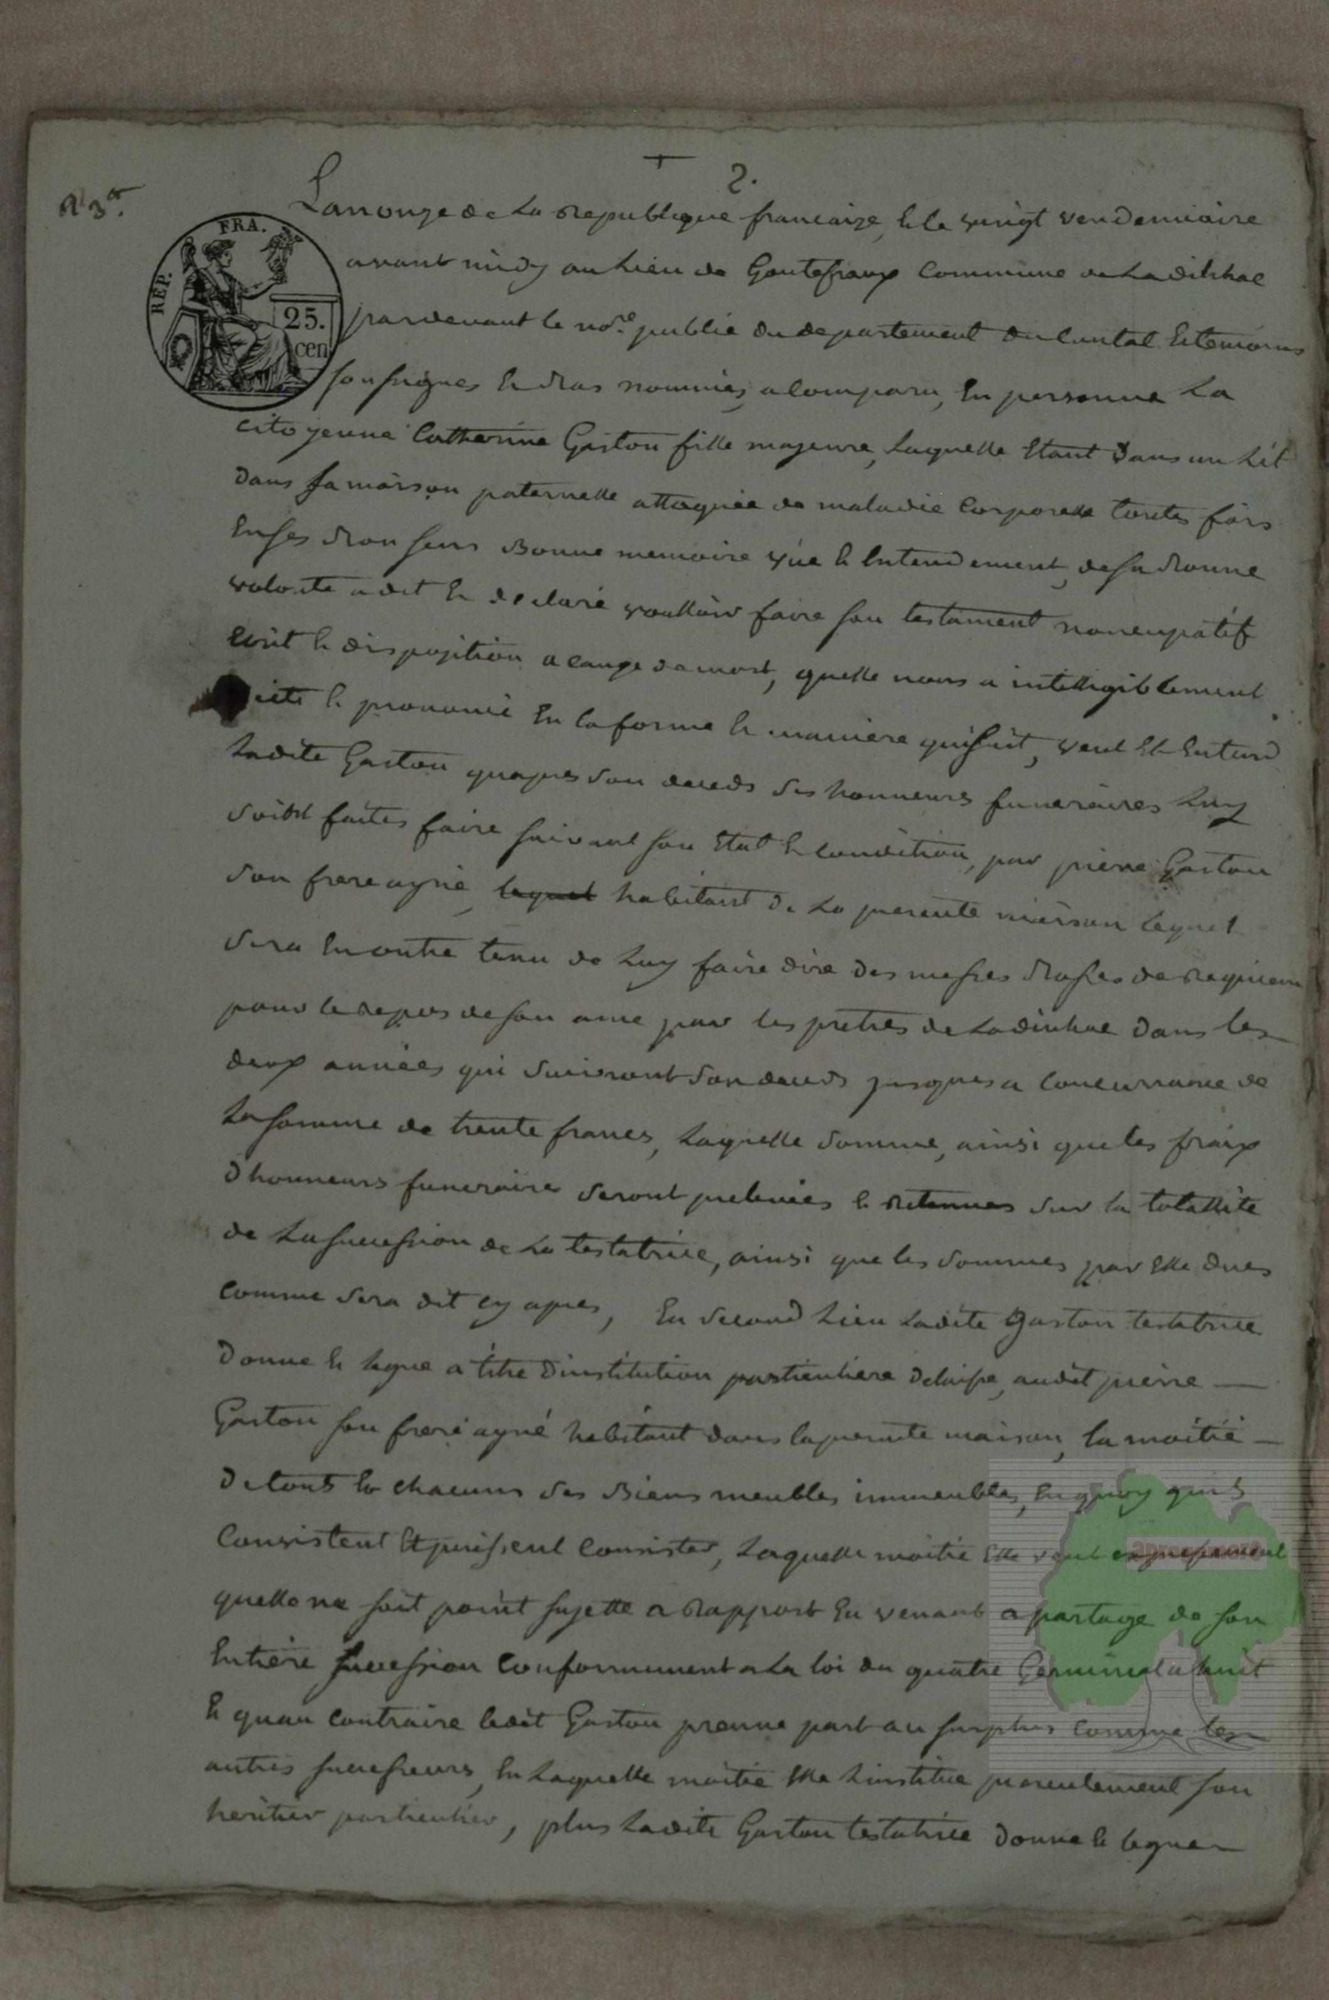 2.
Lan onze de La Republique francaize, & le vingt vendemiaire
REP. FRA.
25.
cen
avant midy au Lieu de Goutefraux Commune de Ladinhac
pardevant le nore. public du departement du Cantal & temoins
soussignes & bas nommés, a Comparu, En personne La
citoyenne Catherine Gaston fille majeure, Laquelle Etant dans un Lit
dans sa maison paternelle attaquée de maladie Corporelle toutes fois
En ses bon sens Bonne memoire vüe & Entendement, de sa bonne
volonte a dit & declaré voulloir faire son testament noncupatif
Ecrit & disposition a cauze de mort, quelle nous a intelligiblement
& prononcé En la forme & maniere quisuit, veut & Entend
Ladite Gaston quapres son deceds ses honneurs funeraires Luy
soint faites faire suivant son Etat & Condition, par pierre Gaston
son frere ayné, lequel habitant de La presente maison Lequel
sera En outre tenu de Luy faire dire des messes basses de Requiem
pour le repos de son ame par les pretres de Ladinhac dans les
deux années qui suivront son deceds jusques a Concurrance de
La somme de trente francs, Laquelle somme, ainsi que les fraix
dhonneurs funeraires seront prelevées & Retenues sur la totallite
de La sucession de La testatrice, ainsi que les sommes par Elle dues
Comme sera dit cy apres, En second Lieu Ladite Gaston testatrice
donne & legue a titre dinstitution particuliere delaisse, audit pierre
Gaston son frere ayné habitant dans la presente maison, la moitié
de touts & chacuns ses Biens meubles immeubles, En quoy quils
Consistent & puissent Consister, Laquelle moitie Elle veut expressement
quelle ne soit point sujette a Rapport En venant a partage de son
Entiere sucession Conformement a La loi du quatre Germinal a huit
& quau Contraire ledit Gaston prenne part au surplus Comme les
autres sucesseurs, En Laquelle moitie Elle Linstitue pareulement son
heritier particulier, plus Ladite Gaston testatrice donne & legue